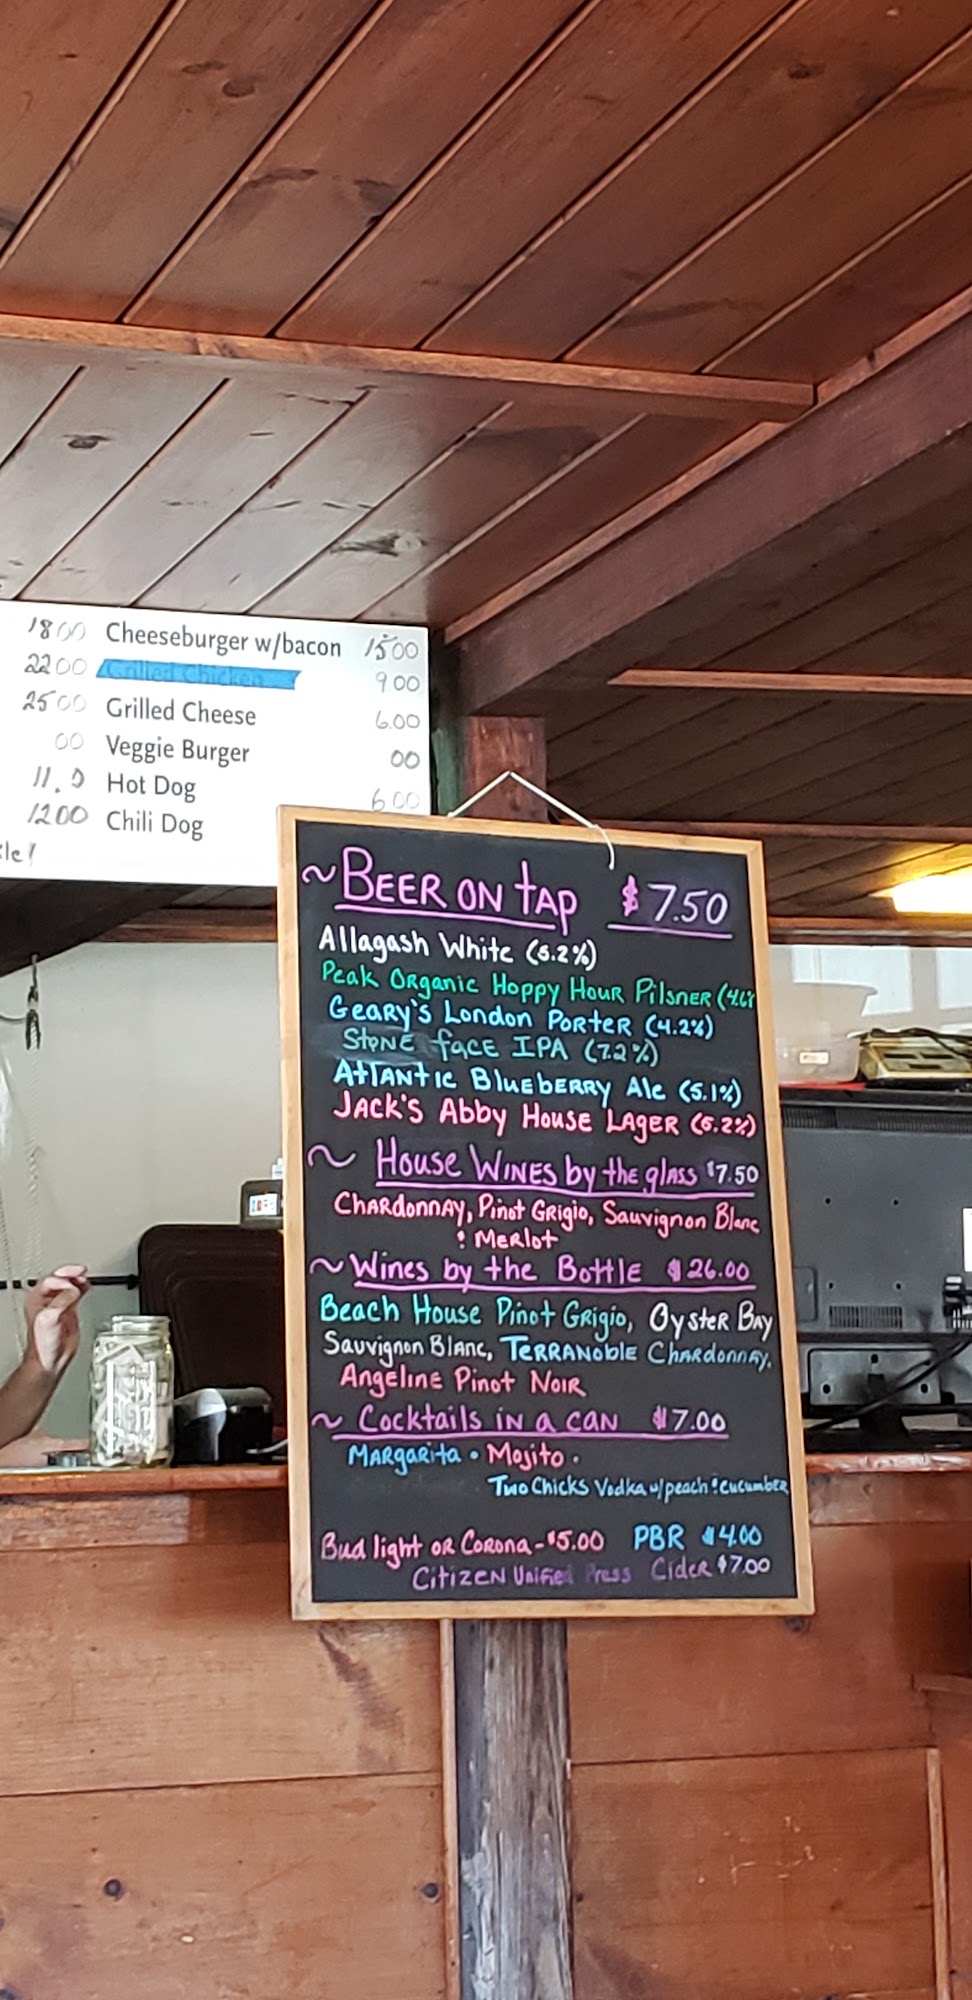 1800 Cheeseburger w/bacon 1500
2200 Grilled Chicken 900
2500 Grilled Cheese 6.00
00 Veggie Burger 00
11. 0 Hot Dog 600
1200 Chili Dog
~BEER ON tAP $7.50
Allagash White (5.2%)
Peak Organic Hoppy Hour Pilsner (4.6%
Geary's London Porter (4.2%)
Stone face IPA (7.2%)
Atlantic Blueberry Ale (5.1%)
Jack's Abby House Lager (5.2%)
~ House Wines by the glass $7.50
Chardonnay, Pinot Grigio, Sauvignon Blanc
& Merlot
~Wines by the Bottle $26.00
Beach House Pinot Grigio, Oyster Bay
Sauvignon Blanc, TerraNoble Chardonnay,
Angeline Pinot Noir
~ Cocktails in a can $7.00
Margarita • Mojito •
Two Chicks Vodka w/peach & cucumber
Bud light or Corona - $5.00 PBR $4.00
Citizen Unified Press Cider $7.00